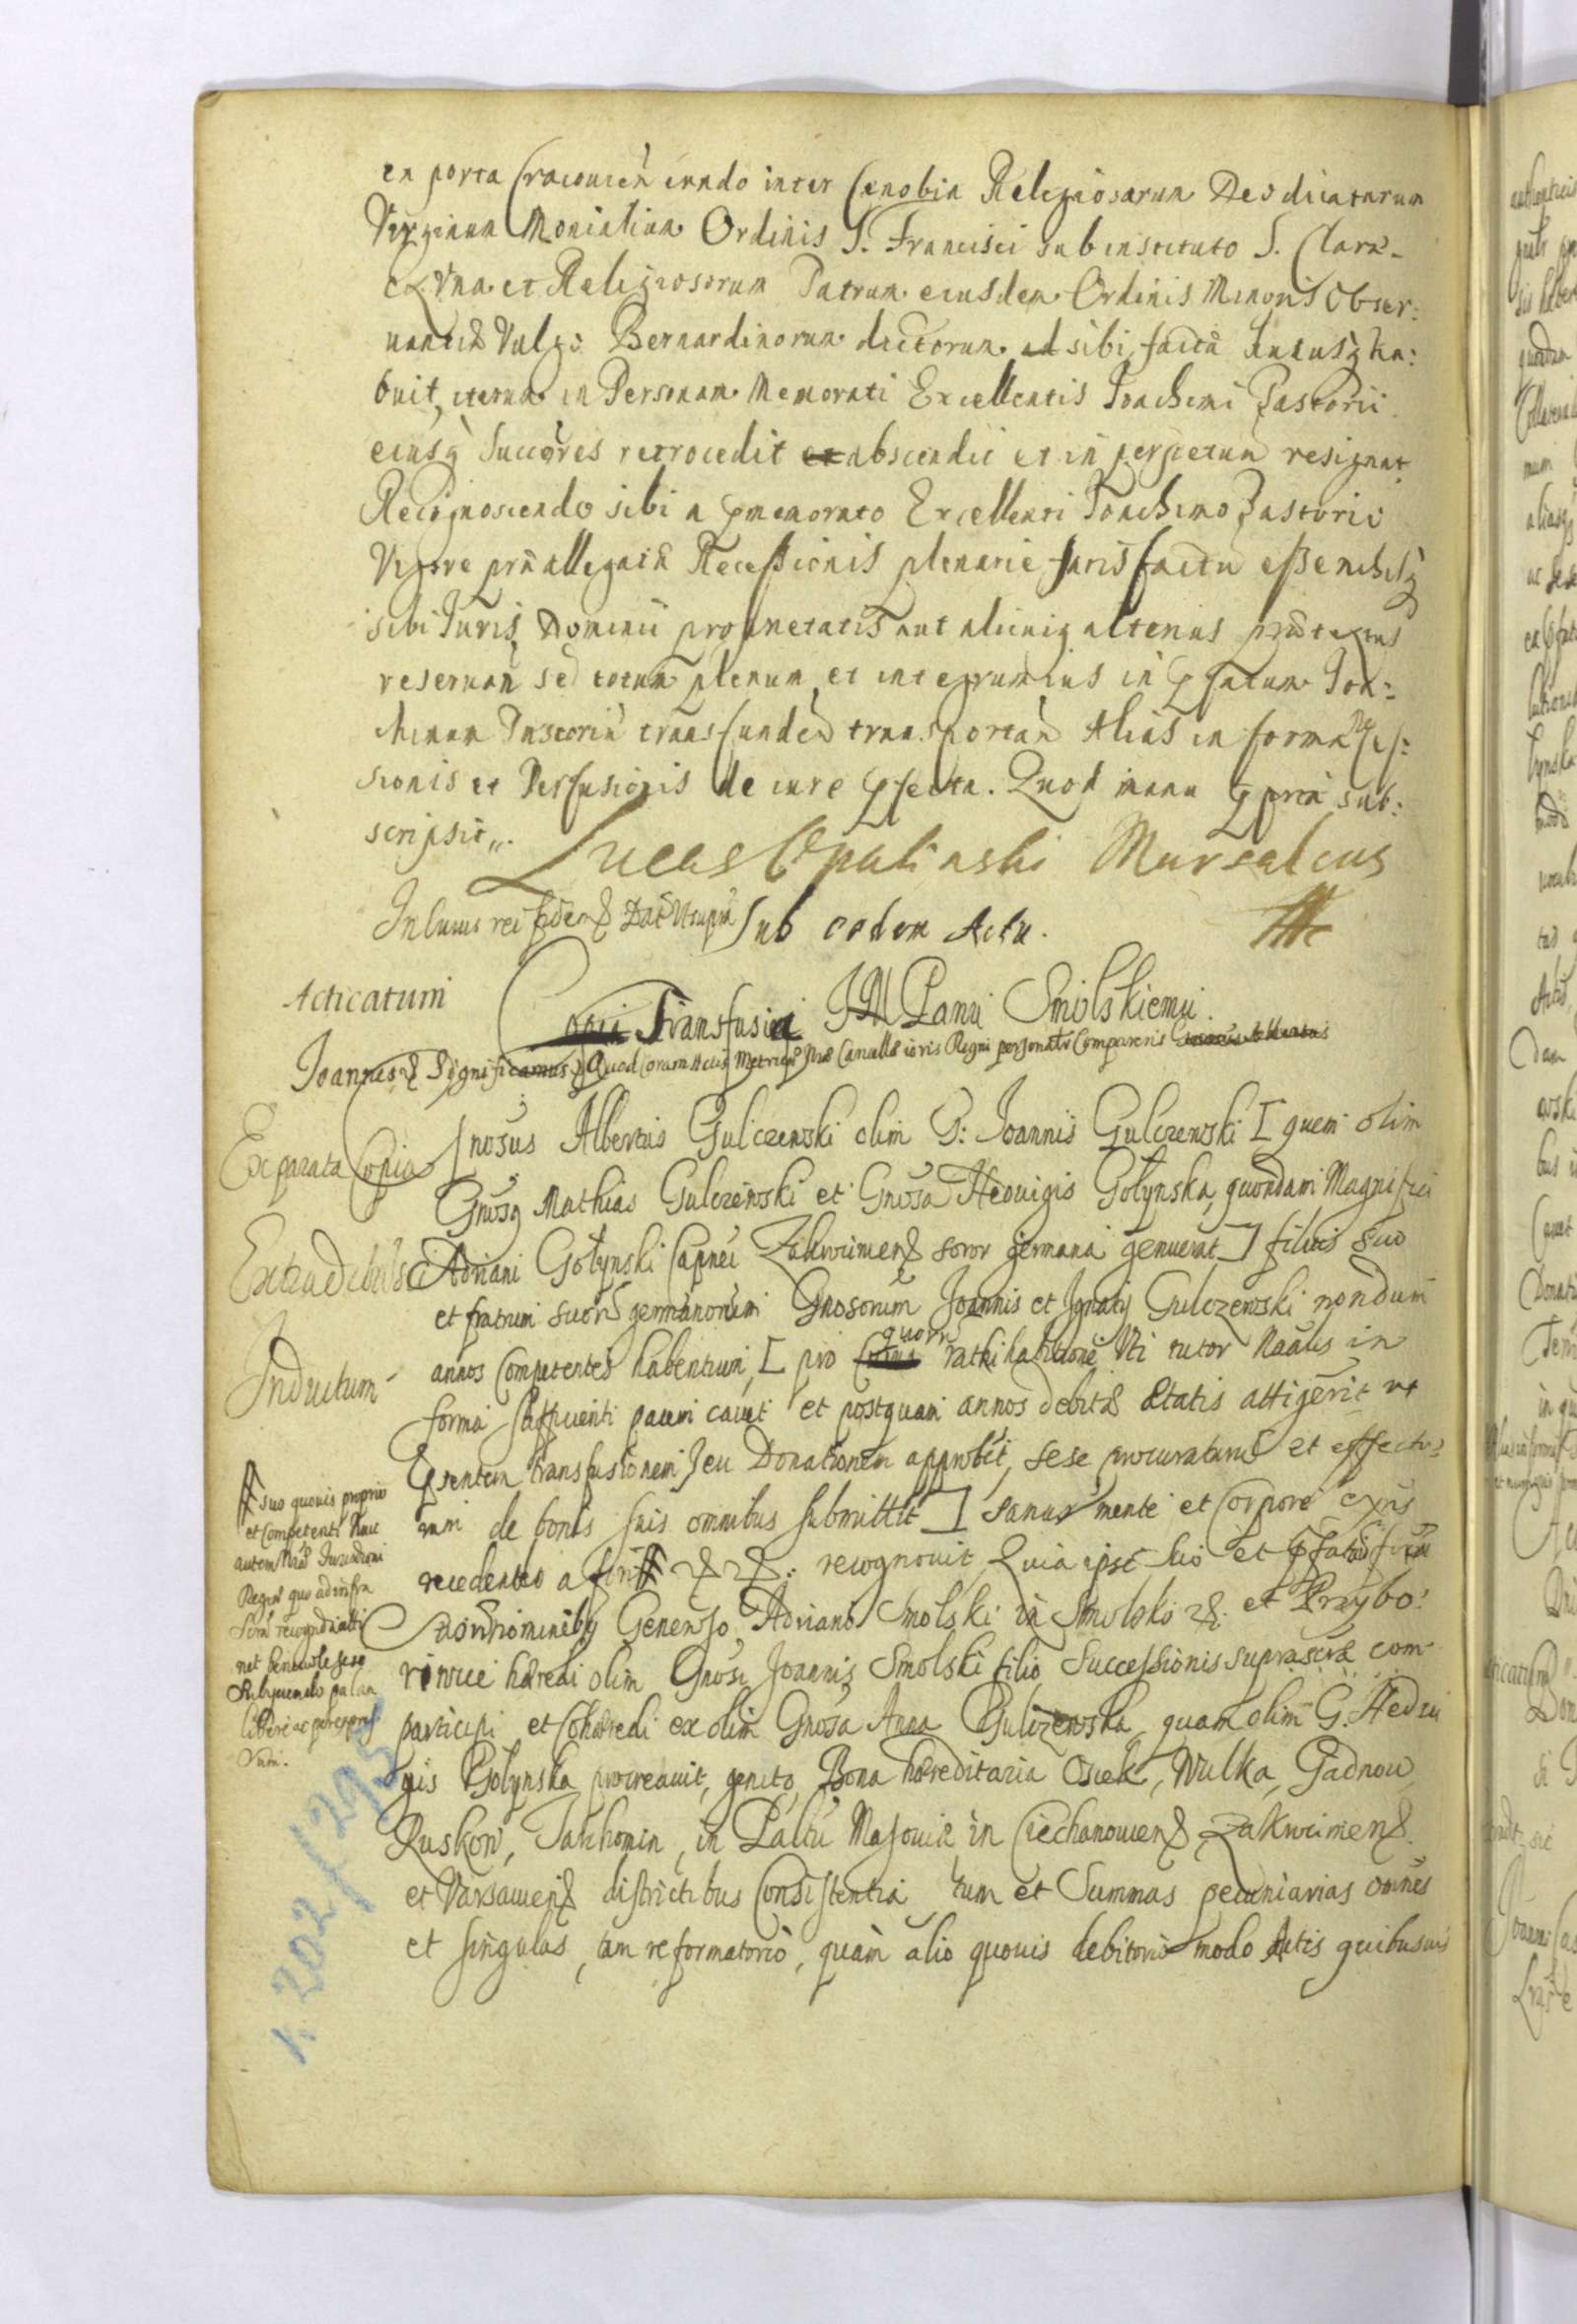 ex porta Cracouien eundo inter Cænobia Religiosarum Deo dicatarum
Virginum Monialium Ordinis S. Francisci sub instituto S. Claræ
ex vna et Religiosorum Patrum eiusdem Ordinis Minoris Obser:
uantiæ Vulgo Bernardinorum dictorum ad sibi factã hucusq ha:
buit, iterum in Personam Memorati Excellentis Joachimi Pastorii
eiusq Succores retrocedit et abscendit et in perpetuum resignat
Recognoscendo sibi a pmemorato Excellenti Joachimo Pastorio
Vigore præallegatæ Recessionis plenarie satisfactu esse nihilq
sibi Juris Dominii proprietatis aut alicuig altenus prætextus
reseruan sed totum plenum et integrum ius in pfatum Joa:
chimum Pastoriũ transfundeñ transportañ Alias in forma Re cess:
sionis et Perfusionis de iure pfecta. Quod manu ppria sub:
scripsit.
Lucas Opalinski Marsalcus
In cuius rei fidem Dat Vtsupra Sub eodem Actu.
Acticatum
Copia Transfusia JM Panu Smolskiemu.
Joannes Significamus Quod coram Actis Metrices Nris Cancellæ ioris Regni personalr Comparens
Exparata Copia
Gnosus Albertus Gulczewski olim G: Joannis Gulczewski [ quem olim
Gnosq Mathias Gulczewski et Gnosa Hedvigis Gołynska, quondam Magnifici
Extradebitsci
Adriani Gołynski Capnei Zakrocimen soror germana genuerat ] filius suo
et fratrum suorũ germanorum Gnosorum Joannis et Ignatij Gulczewski nondum
Inductum
annos Competentes habentium, [ pro quorũ rathihabitione Vti tutor Natus in
forma sufficienti pacem cauet et postquam annos debitæ Ætatis attigerit vt
psentem transfusionem seu Donationem approbet, sese procuraturũ et effectu
rum de bonis suis omnibus submittit ] sanus mente et Corpore exns
recedentes a recognouit Quia ipse suo et pfatorũ frũm
suorũ nominibq Generoso Adriano Smolski in Smolsko et Przybo:
rowie hæredi olim Gnosi Joannis Smolski filio Successionis suprascræ com
participi et Cohæredi ex olim Gnosa Anna Gulczewska, quam olim G. Hedui
gis Gołynska procreauit, genito, Bona hæreditaria Osiek, Wulka, Gadnow
Ruskow, Jakhomin, in Paltu Masouiæ in Ciechanouien, Zakrocimen
et Varsauien districtibus Consistentia tum et Summas pecuniarias omnes
et singulas, tam reformatorio, quàm alio quouis debitorio modo Actis quibusuis
suo quouis proprio
et Competenti Huic
autem Næ Jurisdictioni
Regni quo ad infra
Scra recognoscendi
net beneuole sese
Subyciendo palam
libere ac perexpres
Sum.
k. 202 / 295